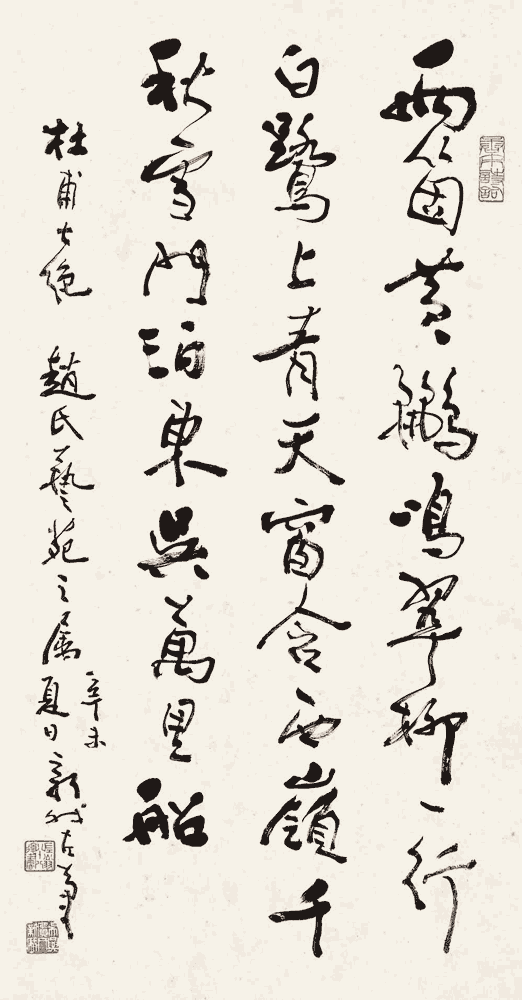 兩箇黃鸝鳴翠柳一行
白鷺上青天窗含西嶺千
秋雪門泊東吳萬里船
杜甫七絕 趙氏藝苑之屬
辛未
夏日新我左筆